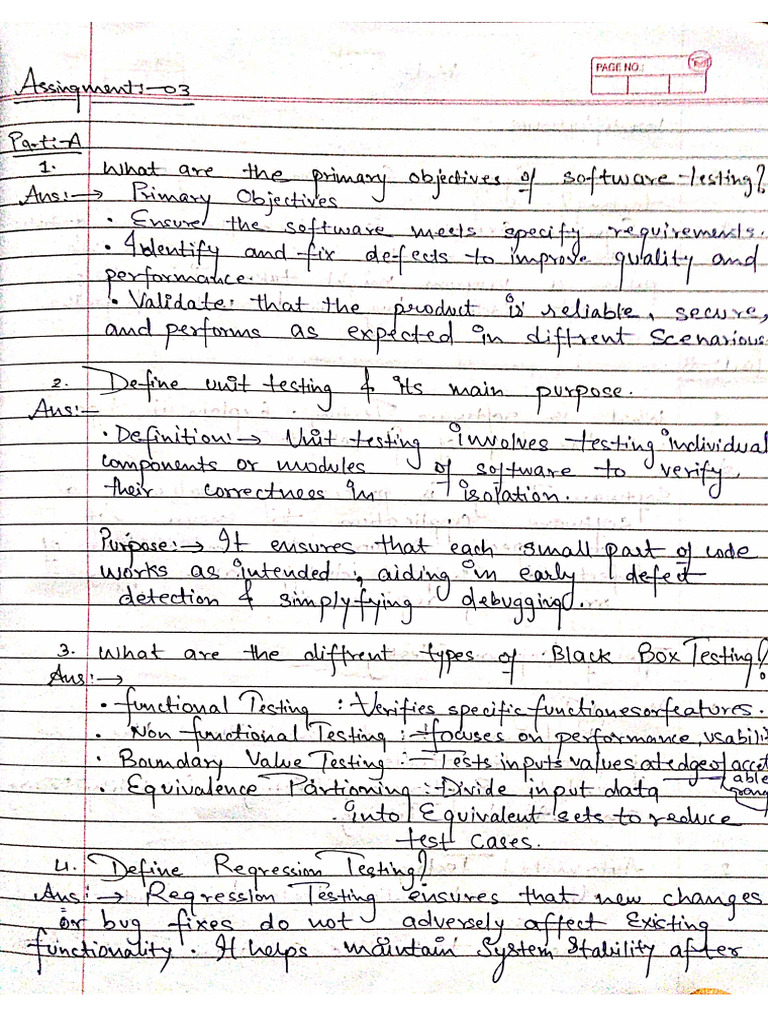 PAGE NO.:
Assingment:-03
Part:-A
1. What are the primary objectives of software testing?
Ans:→ Primary Objectives
• Ensure the software meets specify requirements.
• Identify and fix defects to improve quality and
performance.
• Validate: that the product is reliable, secure,
and performs as expected in diffrent Scenarious.
2. Define unit testing & its main purpose.
Ans:-
• Definition:→ Unit testing involves testing individual
components or modules of software to verify
their correctness in isolation.
Purpose:→ It ensures that each small part of code
works as intended, aiding in early defect
detection & simplyfying debugging.
3. What are the diffrent types of Black Box Testing?
Ans:→
• functional Testing :Verifies specific functionesorfeatures.
• Non functional Testing :-focuses on performance, usabili
• Boundary Value Testing :- Tests inputs values at edge of accet
able
rang
• Equivalence Partioning :-Divide input data
into Equivalent sets to reduce
test cases.
4. Define Regression Testing?
Ans:→ Regression Testing ensures that new changes
or bug fixes do not adversely affect Existing
functionality. It helps maintain System Stability after